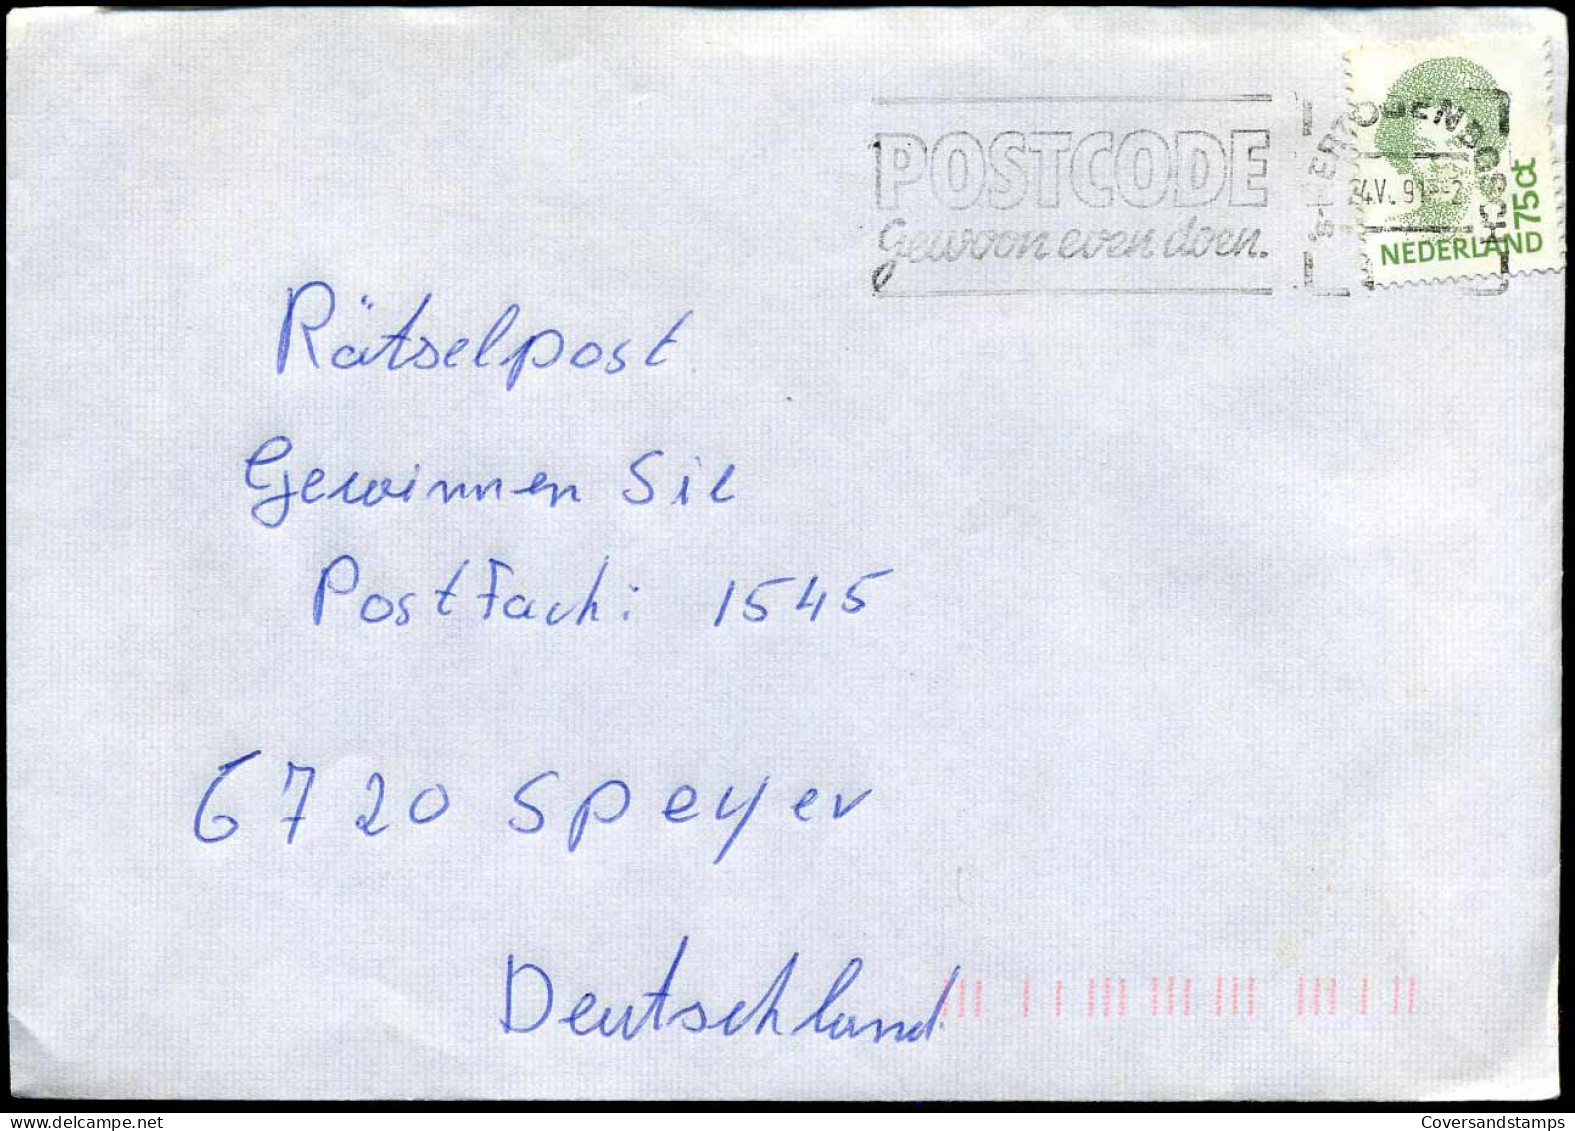 POSTCODE
Gewoon even doen.
's-HERTOGENBOSCH
24.V.91
75ct
NEDERLAND
Rätselpost
Gewinnen Sie
Postfach: 1545
6720 Speyer
Deutschland
Coversandstamps